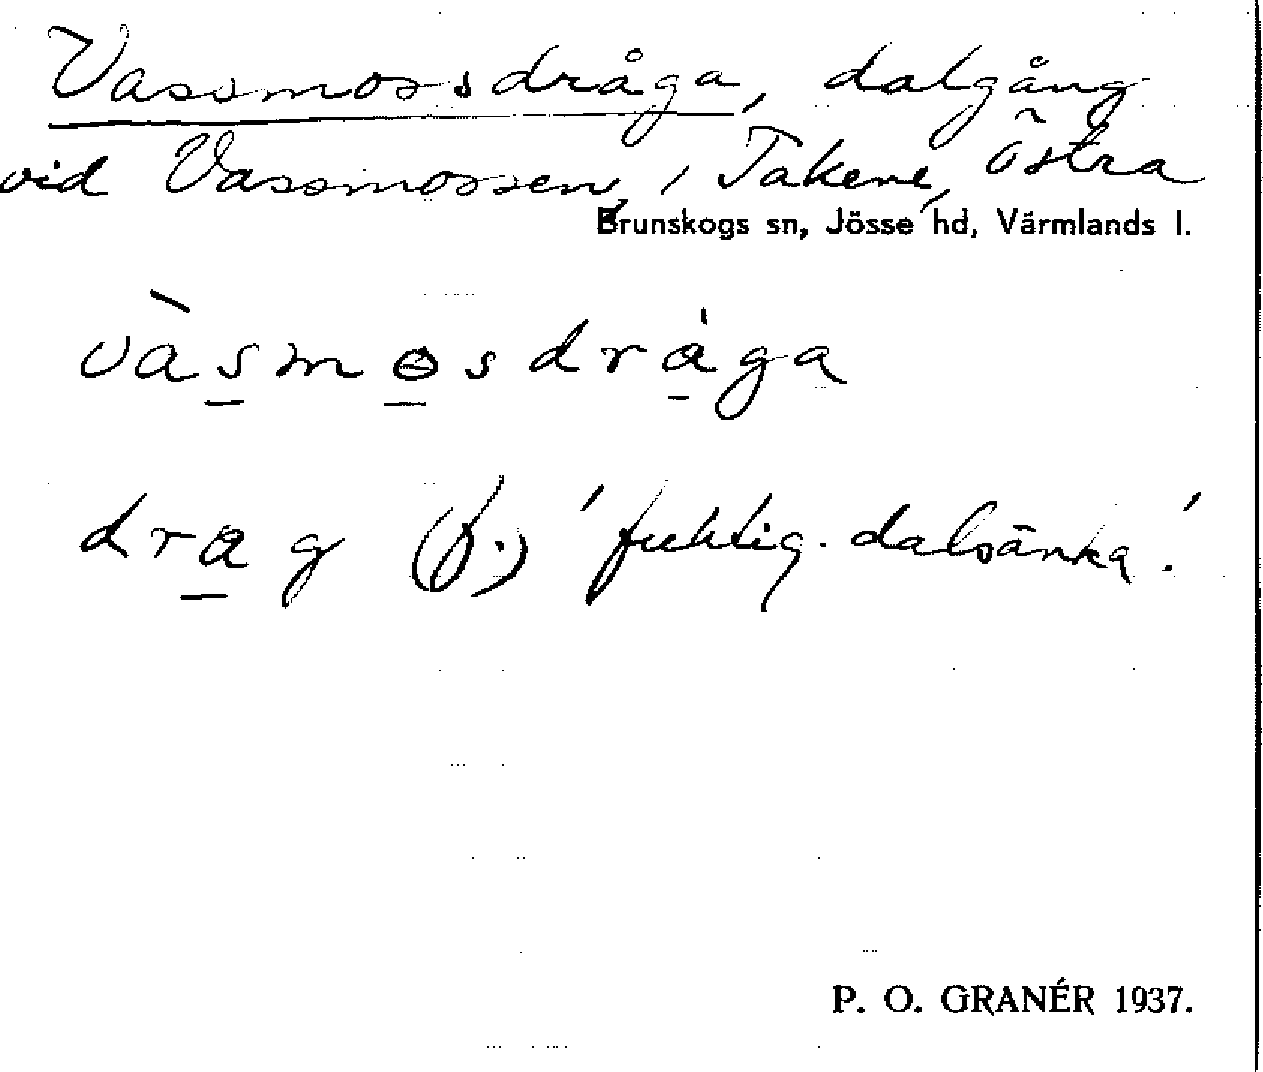 Vassmossdråga, dalgång
vid Vassmossen, i Takene, östra
Brunskogs sn, Jösse hd, Värmlands l.
vàsmɵsdråga
drag (f.) 'fuktig dalsänka.'
P. O. GRANÉR 1937.